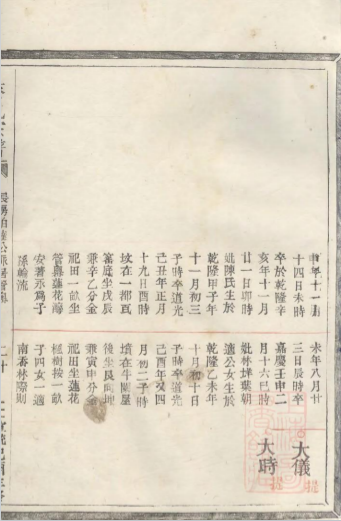 申年十一月
十四日未時
卒於乾隆辛
亥年十一月
廿一日卯時
妣陳氏生於
乾隆甲子年
十一月初三
子時卒道光
己丑年正月
十九日酉時
坟在一都百
富庭坐戌辰
兼辛乙分金
祀田一畝坐
安著永爲子
孫輪流
未年八月廿
三日辰時卒
嘉慶壬申二
月十六巳時
妣林埤葉朝
適公女生於
乾隆乙未年
十月初十日
子時卒道光
己酉年又四
月初二子時
墳在牛闌屋
後坐艮向坤
兼寅申分金
祀田坐蓮花
樹按一畝
子四女一適
南香林際則
大儀
提
大時
提